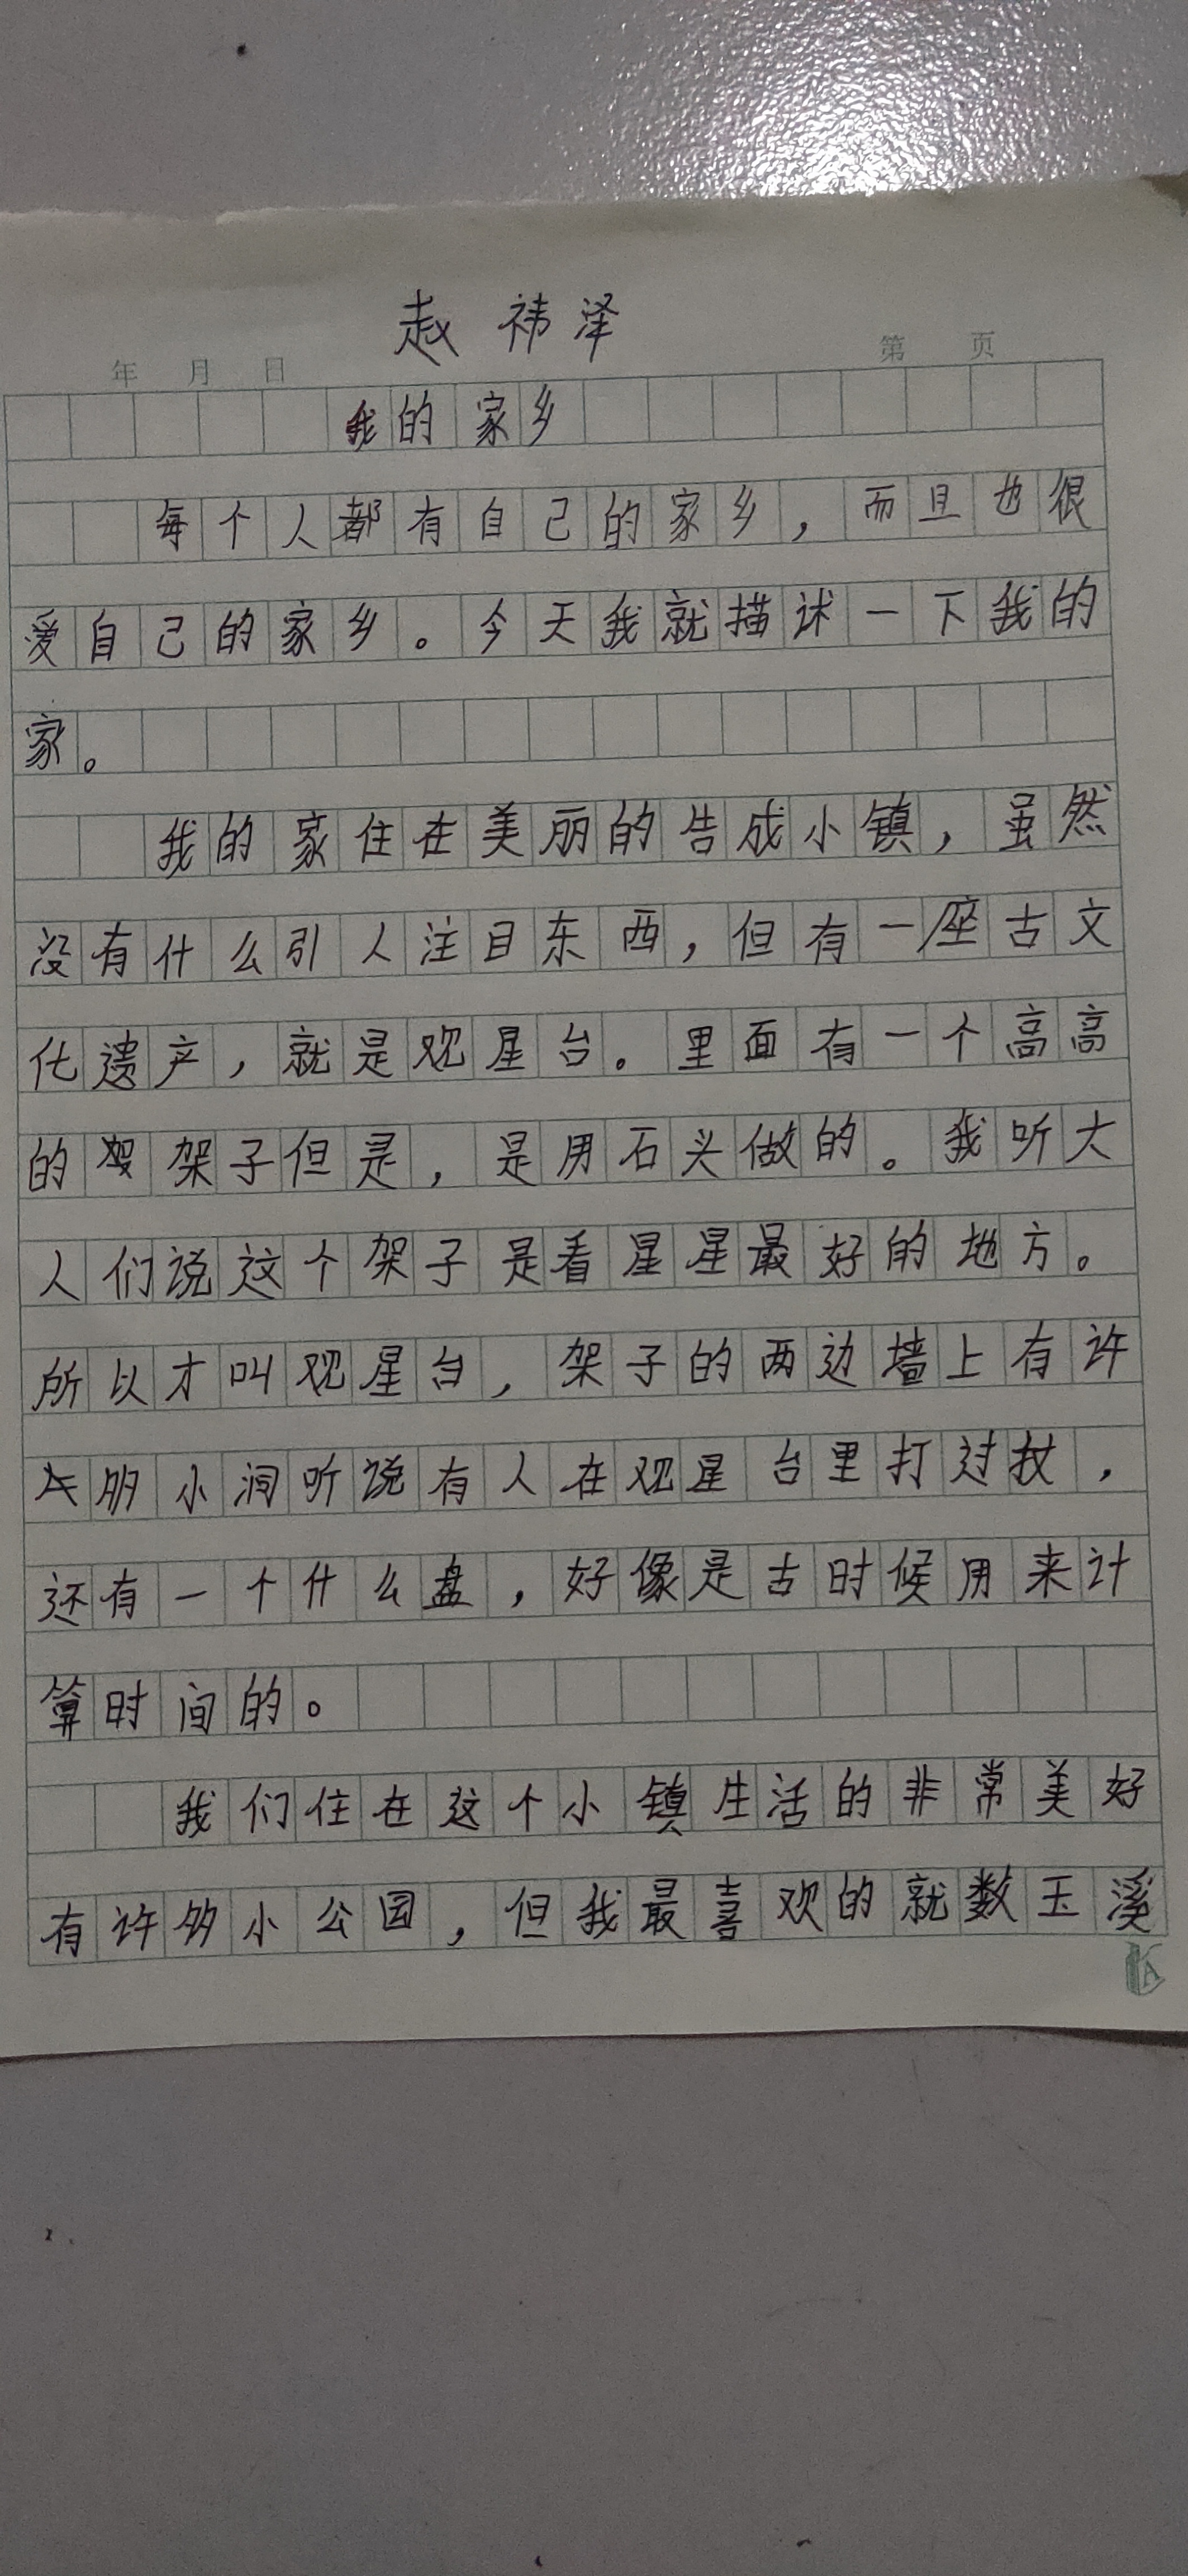 赵祎泽
年 月 日 第 页
我的家乡
每个人都有自己的家乡，而且也很
爱自己的家乡。今天我就描述一下我的
家。
我的家住在美丽的告成小镇，虽然
没有什么引人注目东西，但有一座古文
化遗产，就是观星台。里面有一个高高
的架子但是，是用石头做的。我听大
人们说这个架子是看星星最好的地方。
所以才叫观星台，架子的两边墙上有许
小洞听说有人在观星台里打过仗，
还有一个什么盘，好像是古时候用来计
算时间的。
我们住在这个小镇生活的非常美好
有许多小公园，但我最喜欢的就数玉溪